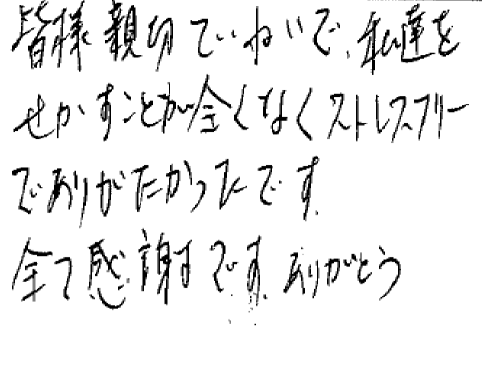 皆様親切でていねいで、私達を
せかすことが全くなくストレスフリー
でありがたかったです。
全て感謝です。ありがとう